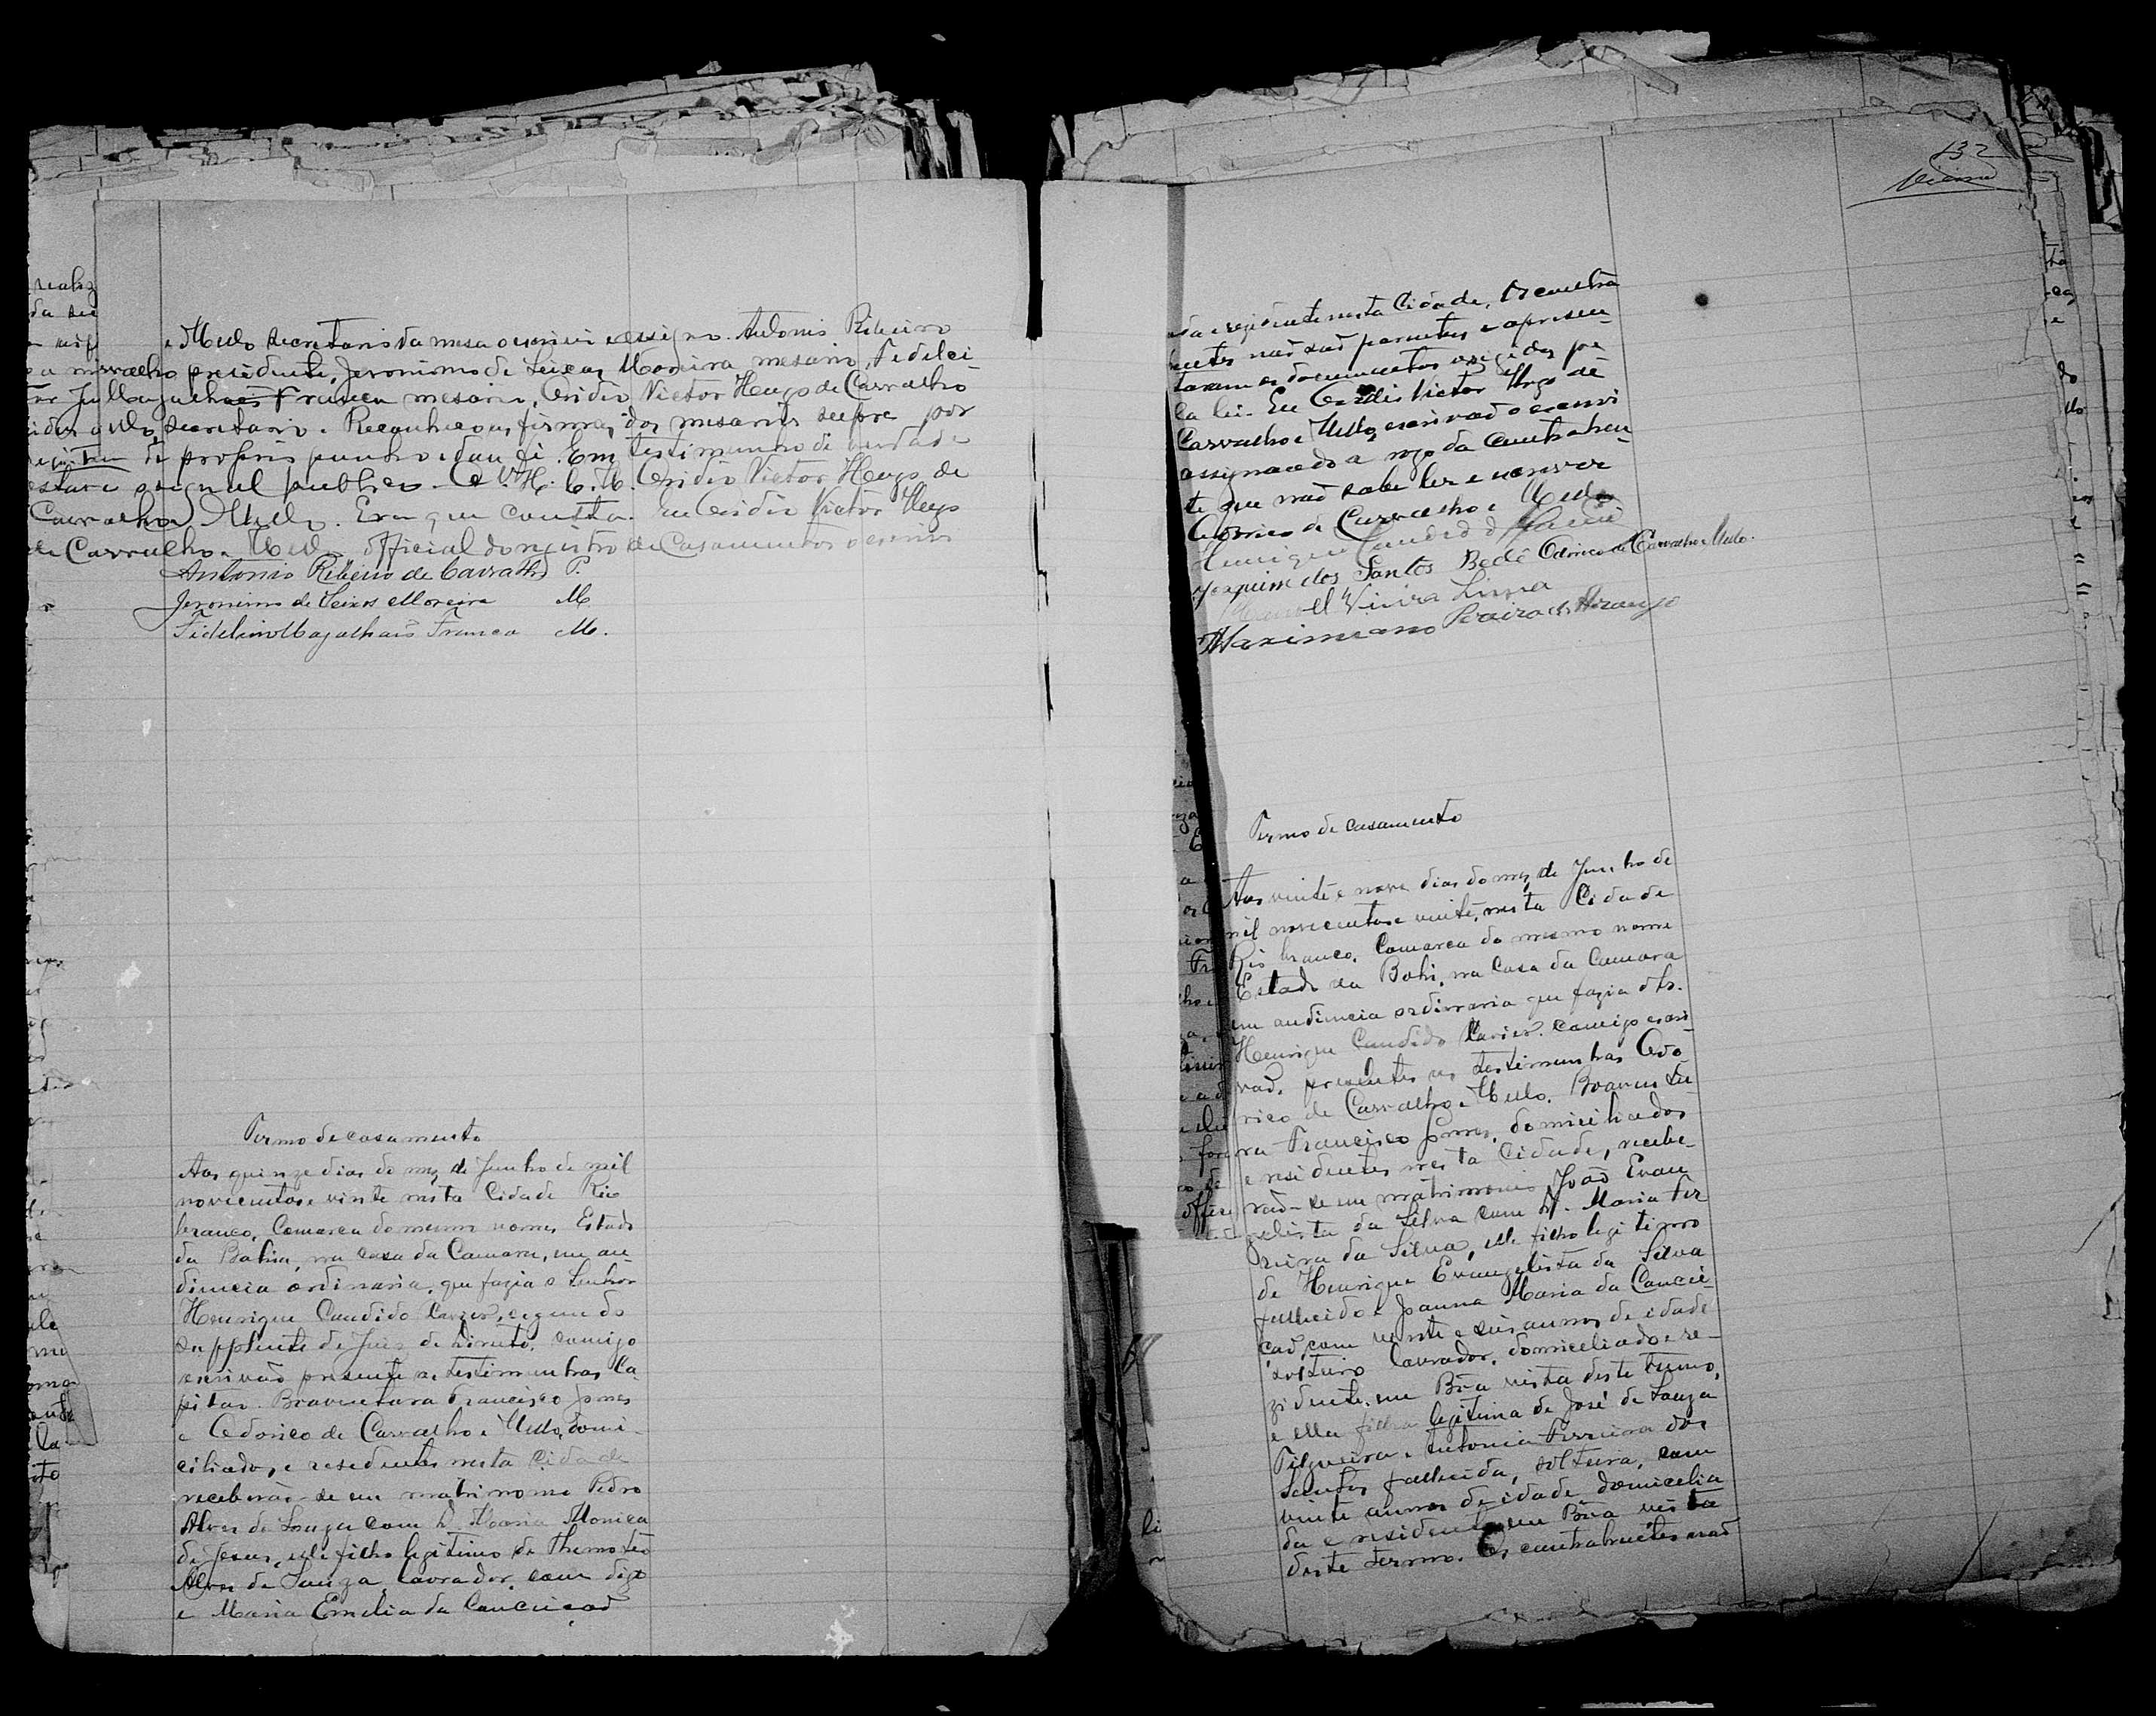 e Mello secretario da mesa o escrevi e assigno. Antonio Ribeiro
presidente, Jeronimo de Seixas Moreira mesario, Fidelci
Magalhaes Franca mesario, Ovidio Victor Hugo de Carvalho
secretario. Reconheço as firmas dos mesarios supra por
de proprio punho e dou fé. Em testimunho de verdade
signal publico. O. V. H. C. M. Ovidio Victor Hugo de
Carvalho Mello. Era que constta. Eu Ovidio Victor Hugo
de Carvalho e Mello official do registro de Casamentos o escrevi
Antonio Ribeiro de Carvalho P.
Jeronimo de Seixas Moreira M.
Fidelcino Magalhais Franca M.
Termo de casamento
Aos quinze dias do mez de Junho de mil
novecentos e vinte nesta Cidade Rio
branco, Comarca do mesmo nome, Estado
da Bahia, na casa da Camara, em au
diencia ordinaria, que fazia o Senhor
Henrique Candido Xavier, segundo
supplente de Juiz de Direito, comigo
escrivão presente as testimunhas Ca
pitão Boaventura Francisco Gomes
e Odorico de Carvalho e Mello, domi-
ciliados, e residentes nesta Cidade
receberão-se em matrimonio Pedro
Alves de Souza com D. Maria Monica
de Jesus, elle filho legitimo de Themoteo
Alves de Souza, lavrador, com digo
e Maria Emelia da Conceição
132
da e residente nesta Cidade. Os contra
hentes não são parentes e apresen-
taram os documentos exigidos pe
la lei. Eu Ovidio Victor Hugo de
Carvalho e Mello, escrivão o escrevi
assignando a rogo da Contrahen-
te que não sabe ler e escrever
Odorico de Carvalho e Mello
Henrique Candido Xavier
Joaquim dos Santos Bedê Odorico de Carvalho e Mello.
Manoel Vieira Lima
Maximiano Pereira de Araujo
Termo de casamento
Aos vinte e nove dias do mez de Junho de
mil novecentos e vinte, nesta Cidade
Rio branco, Comarca do mesmo nome
Estado da Bahi, na Casa da Camara
em audiencia ordinaria que fazia o Sr.
Henrique Candido Xavier, comigo escri-
vão, presentes as testimunhas Odo-
rico de Carvalho e Mello, Boaventu-
ra Francisco Gomes, domiciliados
e residentes nesta Cidade, recebe-
rão-se em matrimonio João Evan
gelista da Silva com D. Maria Fer
reira da Silva, elle filho legitimo
de Henrique Evangelista da Silva
fallecido e Joanna Maria da Concei-
ção, com vinte e seis annos de idade
solteiro lavrador, domiceliado e re-
zidente, em Bôa vista deste termo,
e ella filha legitima de José de Souza
Filgueira e Antonia Ferreira dos
Santos fallecida, solteira, com
vinte annos de idade domicelia
da e residente em Bôa vista
deste termo. Os contrahentes não